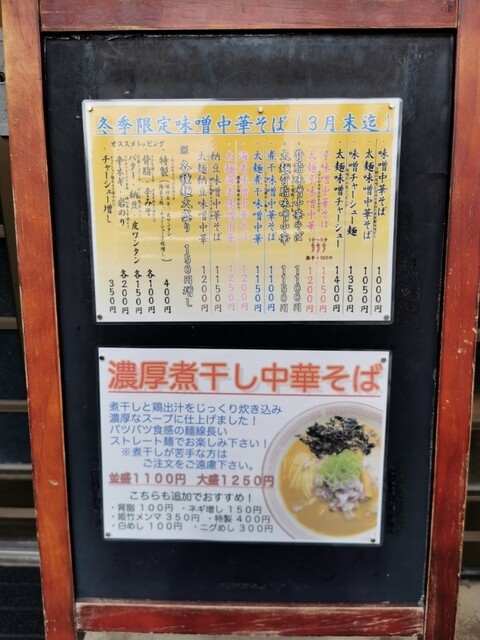 冬季限定味噌中華そば（3月末迄）
味噌中華そば 1000円
太麺味噌中華そば 1050円
味噌チャーシュー麺 1350円
太麺味噌チャーシュー 1400円
辛味噌中華そば 1150円
太麺辛味噌中華 1200円
背脂味噌中華そば 1100円
太麺背脂味噌中華 1150円
煮干味噌中華そば 1100円
太麺煮干味噌中華 1150円
1200円
1250円
納豆味噌中華そば 1150円
太麺納豆味噌中華 1200円
※各種麺大盛り 150円増し
オススメトッピング
特製 400円
背脂、辛みそ 各100円
バター、納豆、皮ワンタン 各150円
辛ネギ、岩のり 各200円
チャーシュー増し 350円
濃厚煮干し中華そば
煮干しと鶏出汁をじっくり炊き込み
濃厚なスープに仕上げました！
パツパツ食感の麺線長い
ストレート麺でお楽しみ下さい！
※煮干しが苦手な方は
ご注文をご遠慮下さい。
並盛1100円 大盛1250円
こちらも追加でおすすめ！
・背脂 100円 ・ネギ増し 150円
・姫竹メンマ 350円 ・特製 400円
・白めし 100円 ・ニグめし 300円